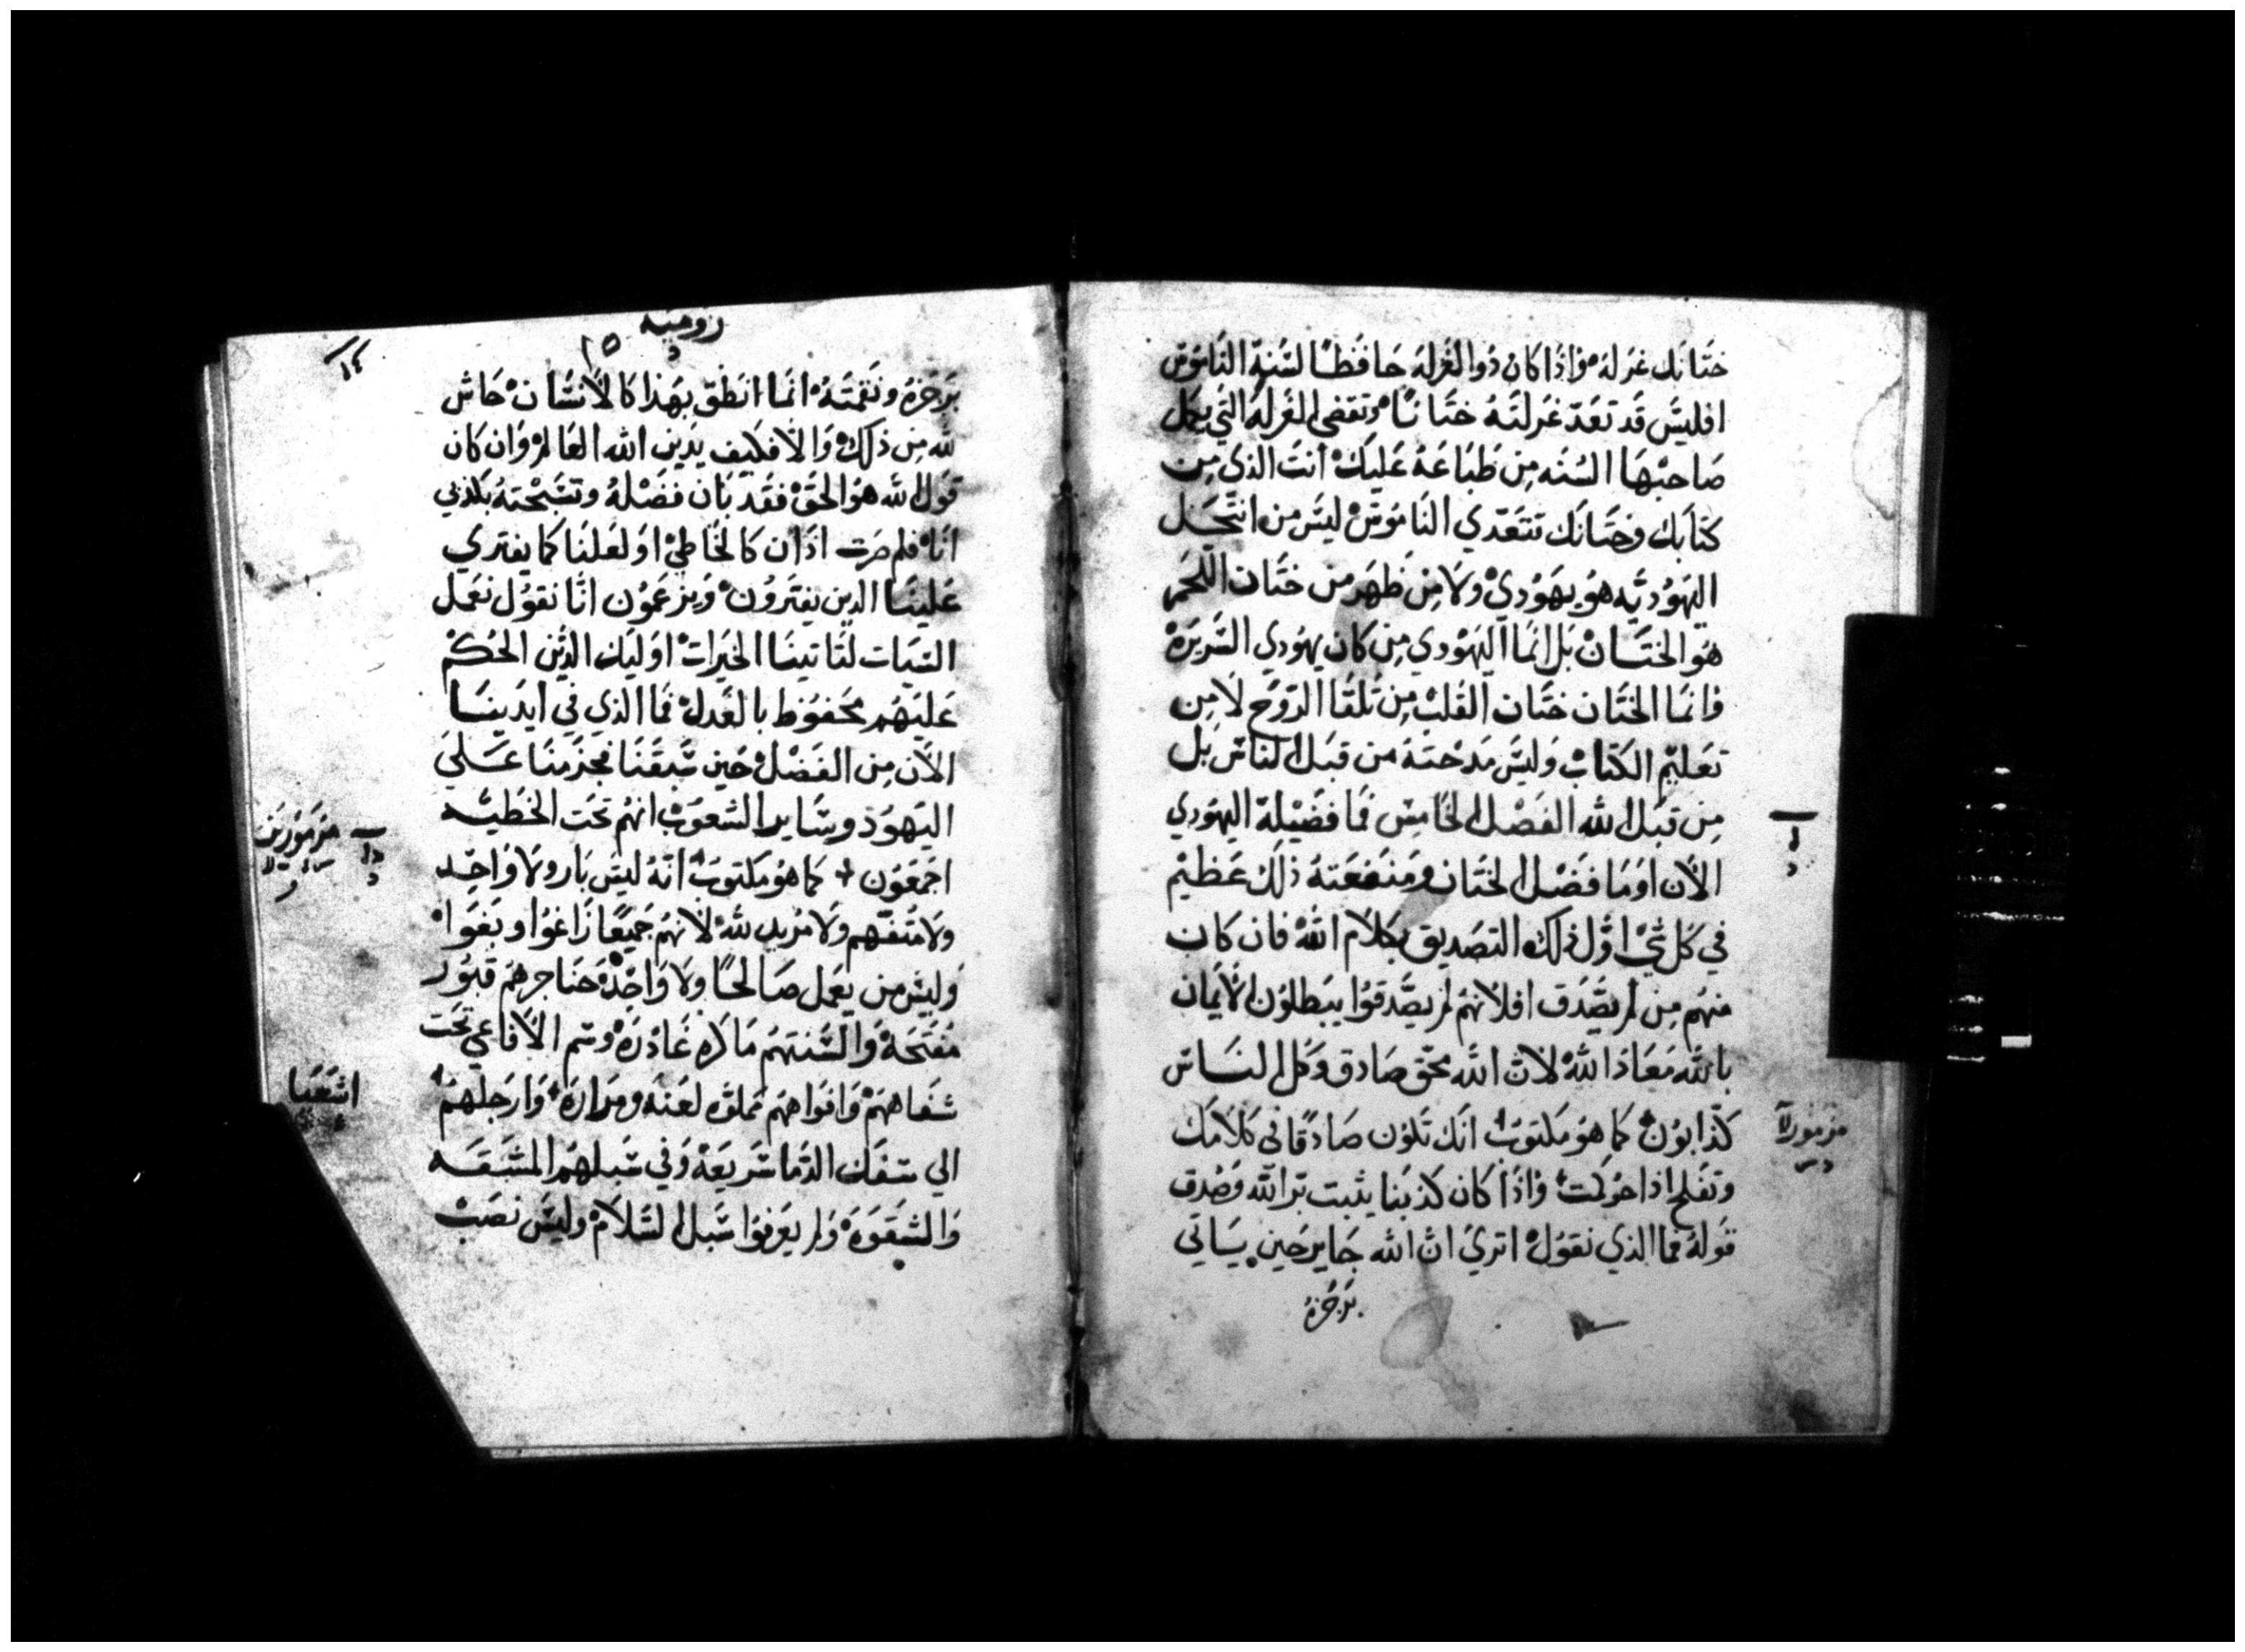 ختانك غرله وٕاذا كان ذوا الغرله حافظا لسنة الناموس
افليس قد تعد غرلته ختانا وتقضي الغرله التي يعمل
صاحبها السنه من طباعه عليك أنت الذي من
كتابك وختانك تتعدي الناموس ليس من انتحل
اليهوديه هو يهودي ولا من ظهر من ختان اللحم
هو الختان بل انما اليهودي من كان يهودي السريره
وانما الختان ختان القلب من تلقا الروح لا من
تعليم الكتاب وليس مدحته من قبل الناس بل
من قبل الله الفصل الخامس فما فضيلة اليهودي
الأن اوما فضل الختان ومنفعته ذلك عظيم
في كل شي اول ذلك التصديق بكلام الله فان كان
منهم من لم يصدق افلانهم لم يصدقوا يبطلون الأيمان
بالله معاذ الله لان الله محق صادق وكل الناس
كذابون كما هو مكتوب انك تكون صادقا في كلامك
وتفلح اذا حوكمت واذا كان كذبنا يثبت بر الله وصدق
قوله فما الذي نقول اتري ان الله جاير حين ياتي
برجزه
مزمور
روميه
١٥
برجزه ونقمته انما انطق بهذا كالأنسان حاش
لله من ذلك والا فكيف يدين الله العالم وان كان
قول الله هو الحق فقد بان فضله وتسبحته بكذبي
انا فلم صرت اذا ان كالخاطي او لعلنا كما يفتري
علينا الدين يفترون ويزعمون انا نقول نعمل
السيات لتاتينا الخيرات اوليك الذين الحكم
عليهم محفوظ بالعدل فما الذي في ايدينا
الأن من الفضل حين سبقنا فجزمنا علي
اليهود وساير الشعوب انهم تحت الخطيه
اجمعون كما هو مكتوب انه ليس بار ولا واحد
ولا متفهم ولا مريد لله لانهم جميعا زاغوا وبغوا
وليس من يعمل صالحا ولا واحد حناجرهم قبور
مفتحة والسنتهم ماكره غادره وسم الأفاعي تحت
شفاههم وافواههم مملوه لعنه ومراره وارجلهم
الي سفك الدما سريعة وفي سبلهم المشقه
والشقوه ولم يعرفوا سبل السلام وليس نصب
مزمورين
اشعيا